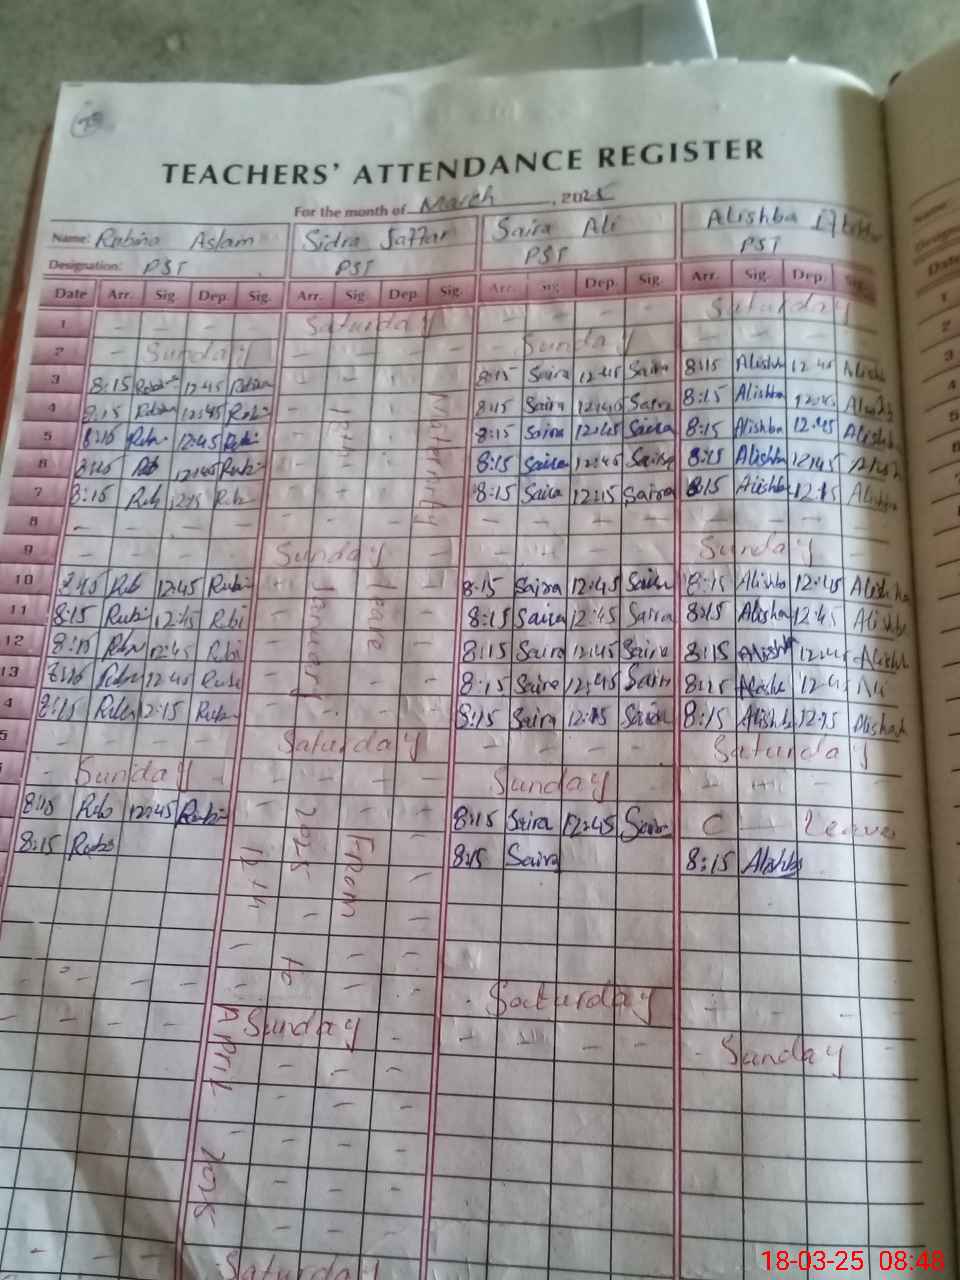 TEACHERS' ATTENDANCE REGISTER
For the month of March, 2025
Name: Rubina Aslam Sidra Saffar Saira Ali Alishba
Designation: PST PST PST PST
Date Arr. Sig. Dep. Sig. Arr. Sig. Dep. Sig. Arr. Sig. Dep. Sig. Arr. Sig. Dep. Sig.
1 - - - - Saturday - - - - Saturday
2 - Sunday - - - - Sunday - - - -
3 8:15 12:45 Rubina - - - 8:15 Saira 12:45 Saira 8:15 Alishba 12:45 Alishb
4 8:15 Rubin 12:45 Rubi - - 8:15 Saira 12:45 Saira 8:15 Alishba 12:45 Alishb
5 8:15 Rub 12:45 Rub - - 8:15 Saira 12:45 Saira 8:15 Alishba 12:45 Alishb
6 8:15 Rub 12:45 Rub - - 8:15 Saira 12:45 Saira 8:15 Alishba 12:45 Alish
7 8:15 Rub 12:15 Rub - - 8:15 Saira 12:15 Saira 8:15 Alishba 12:15 Alishba
8 - - - - - - - - - - - -
9 - - - - Sunday - - - - Sunday -
10 8:15 Rub 12:45 Rub 8:15 Saira 12:45 Saira 8:15 Alishb 12:45 Alishba
11 8:15 Rubi 12:45 Rbi 8:15 Saira 12:45 Saira 8:15 Alishba 12:45 Alishb
12 8:15 Rubin 12:45 Rubi 8:15 Saira 12:45 Saira 8:15 Alishb 12:45 Alishb
13 8:15 Rubin 12:45 Rub 8:15 Saira 12:45 Sair 8:15 12:45 Ali
4 8:15 Rubin 12:15 Rub 8:15 Saira 12:15 Saira 8:15 Alishb 12:15 Alishah
5 - - - - Saturday - - - - Saturday
- Sunday - - - - Sunday - - - -
8:15 Rub 12:45 Rubi 8:15 Saira 12:45 Saira C - Leave
8:15 Rub 8:15 Saira 8:15 Alishba
Maternity
Leave
From
January
2025
to
12th
April 2025
Saturday
Sunday
Sunday
Saturday
18-03-25 08:48